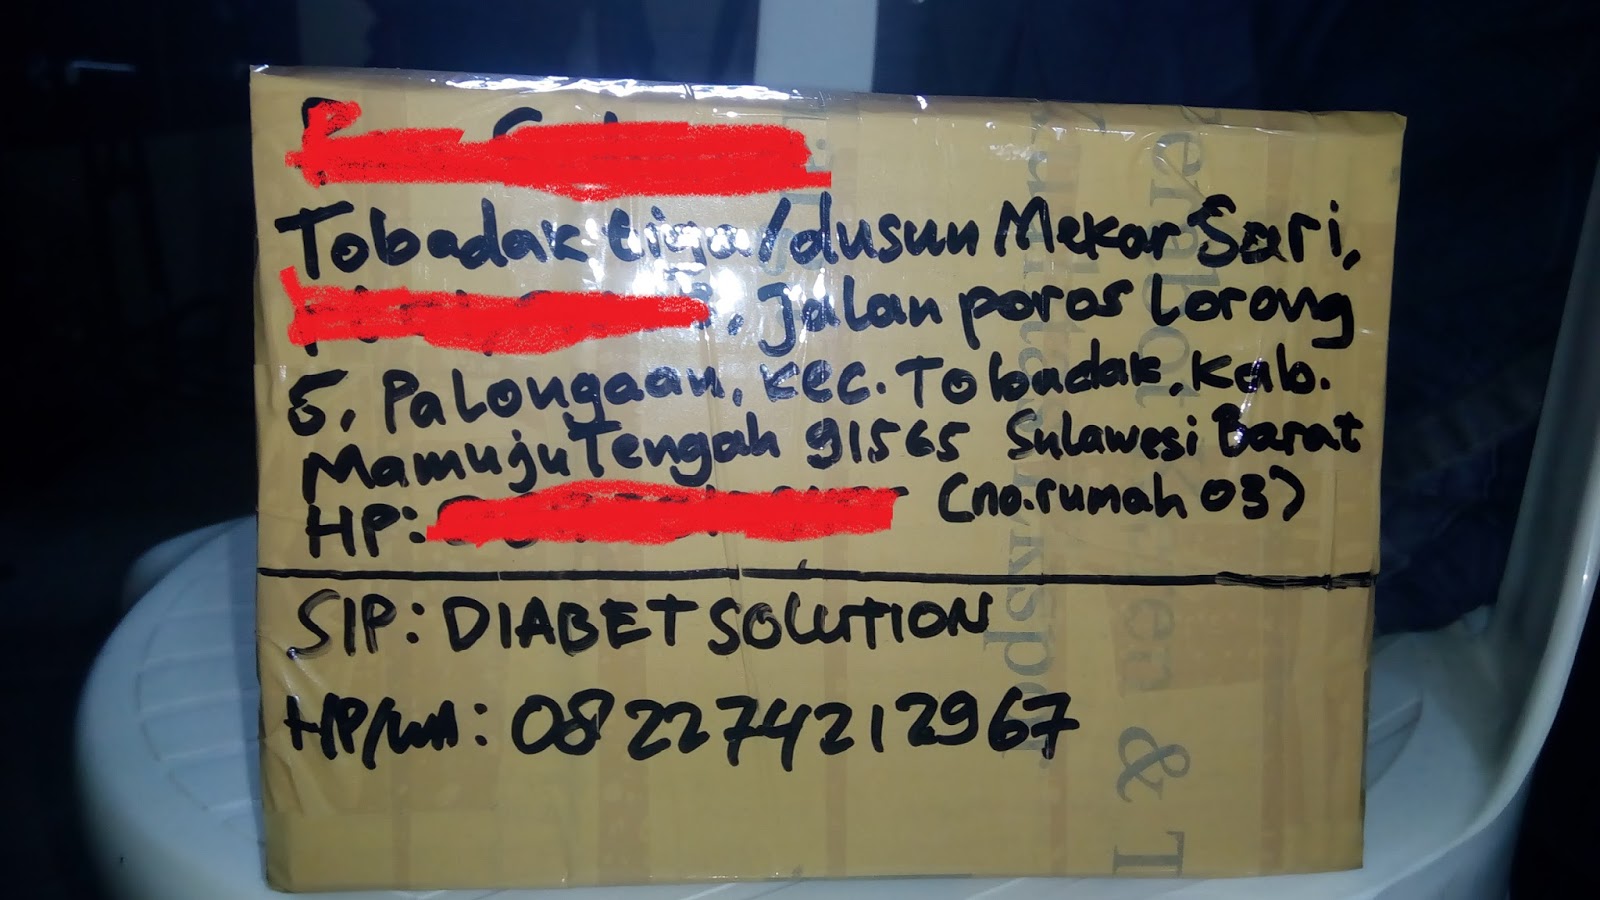 Tobadak tiga/dusun Mekar Sari,
, jalan poros Lorong
5, Palongaan, kec. Tobadak, Kab.
Mamuju Tengah 91565 Sulawesi Barat
HP: (no.rumah 03)
SIP: DIABET SOLUTION
HP/WA: 082274212967